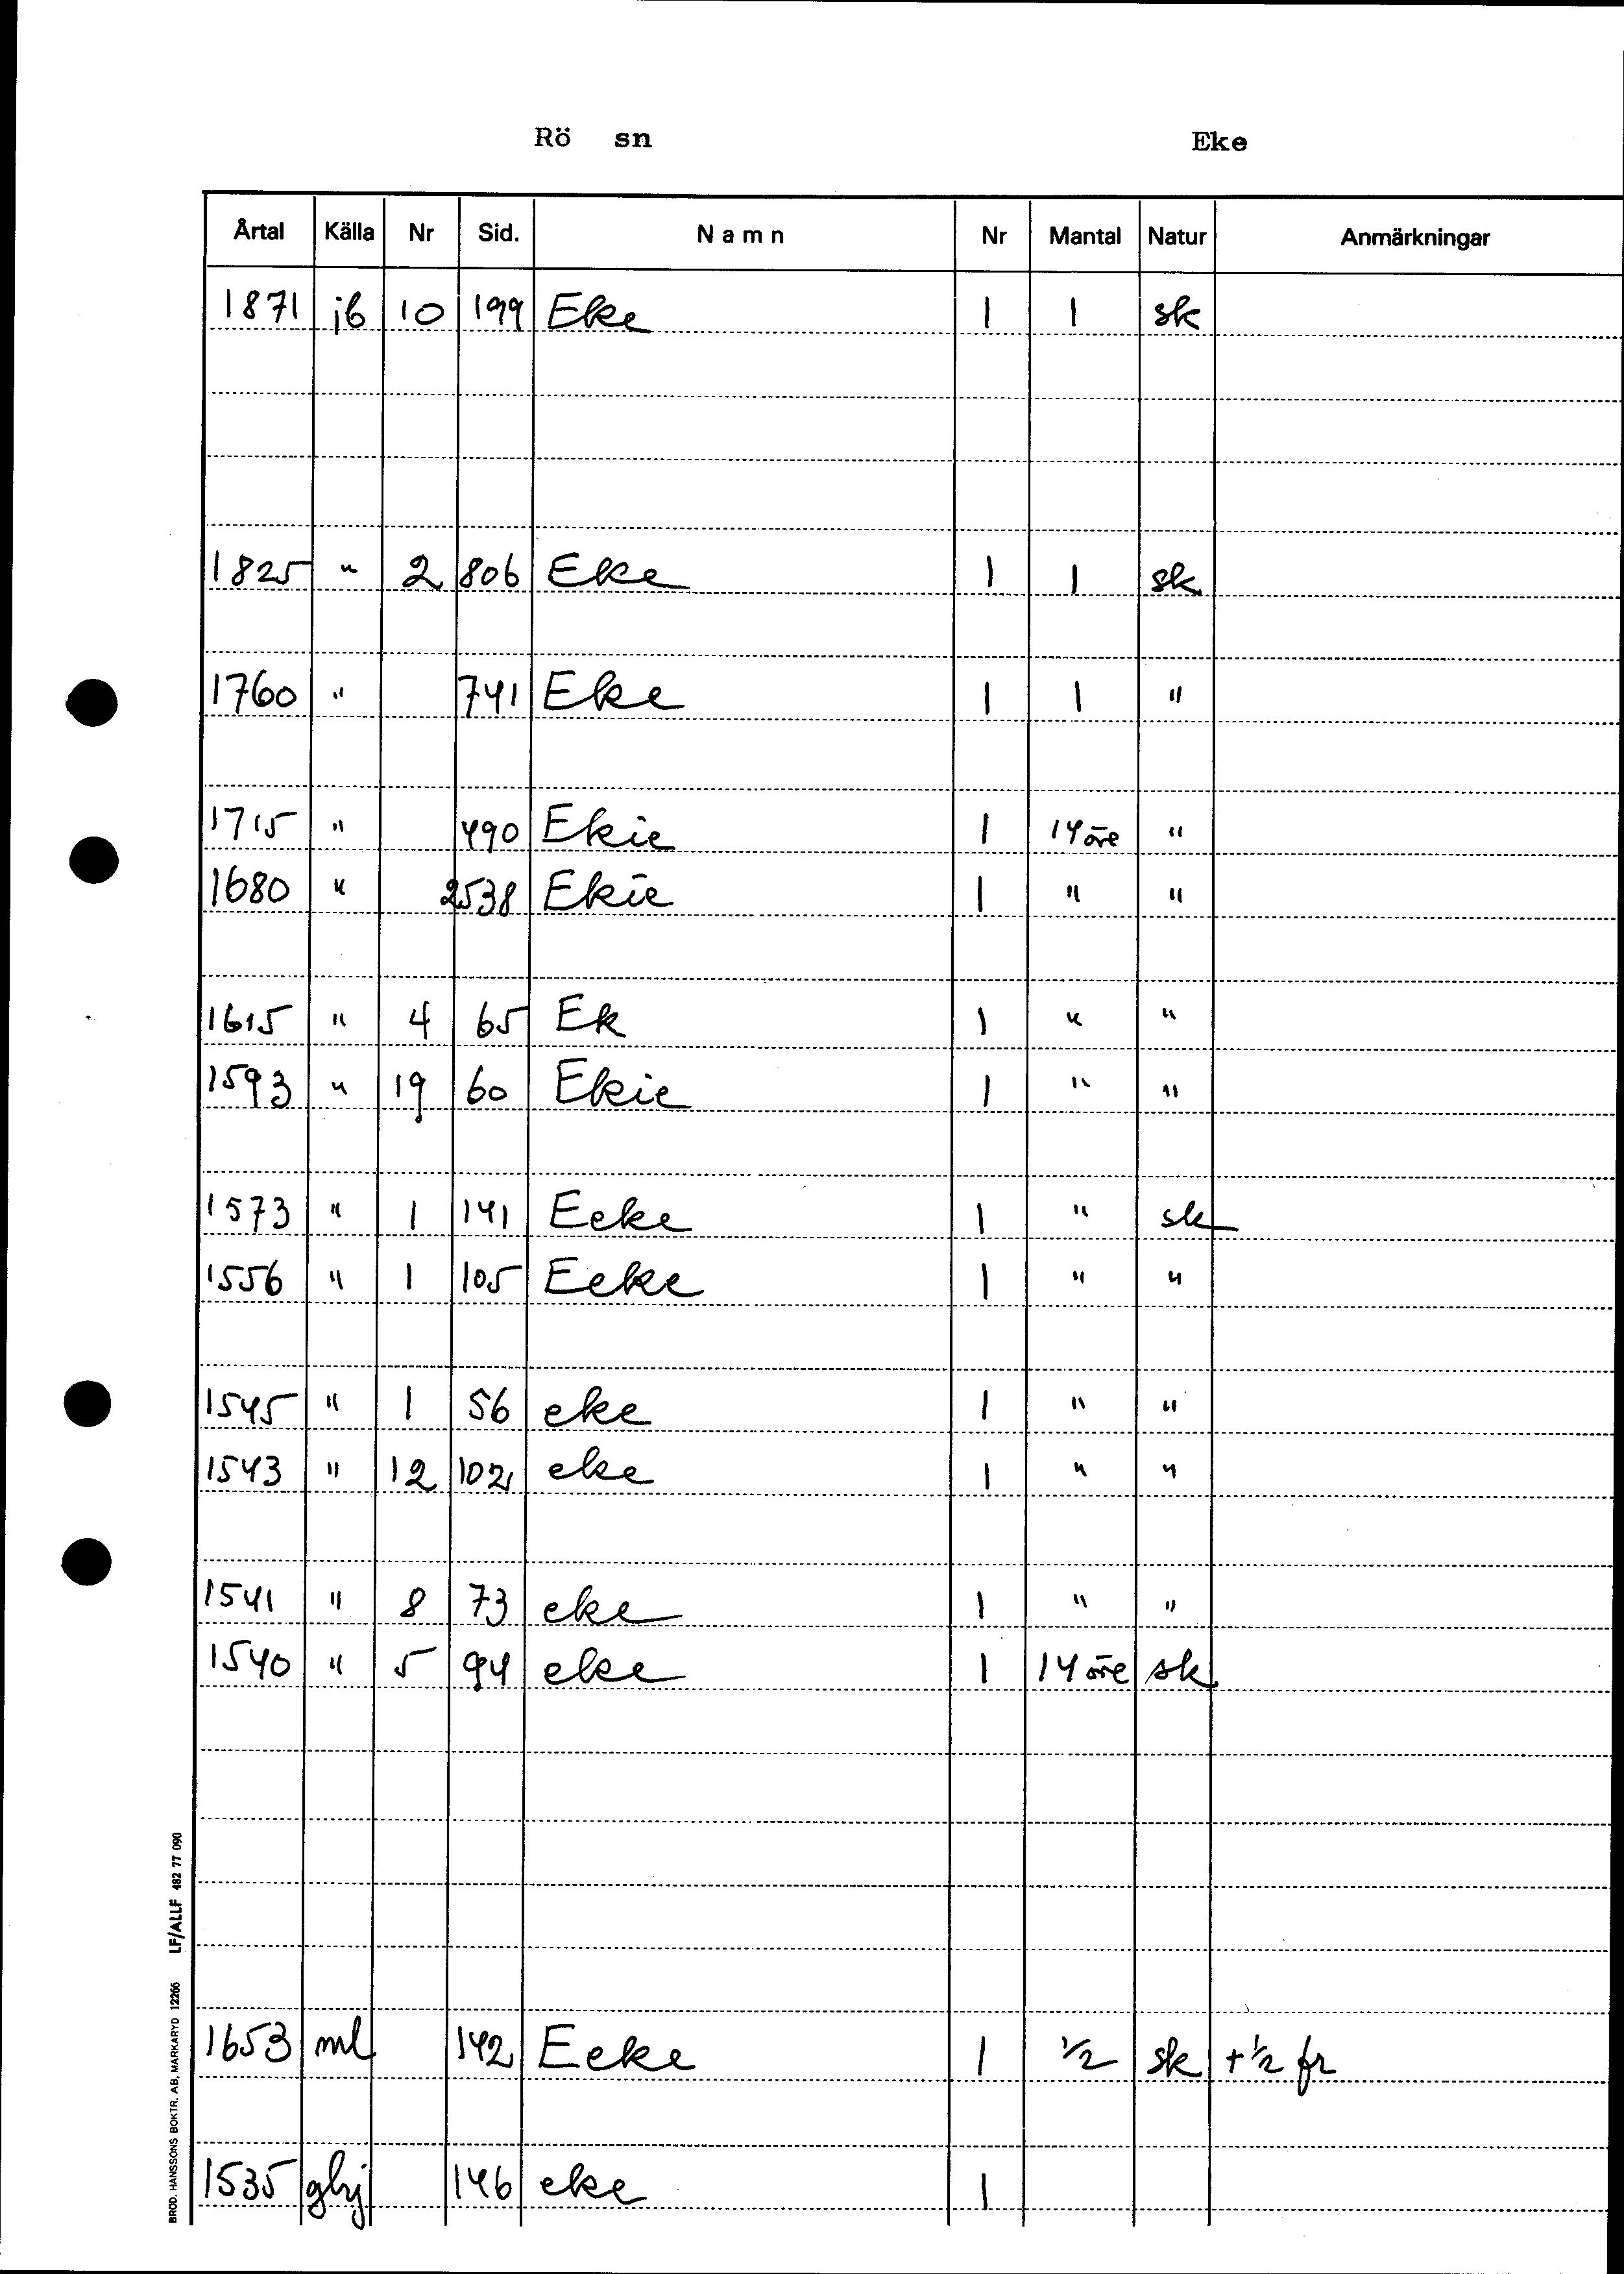 Rö sn Eke
Årtal Källa Nr Sid. Namn Nr Mantal Natur Anmärkningar
1871 jb 10 199 Eke 1 1 sk
1825 " 2 806 Eke 1 1 sk
1760 " 741 Eke 1 1 "
1715 " 490 Ekie 1 14 öre "
1680 " 2538 Ekie 1 " "
1615 " 4 65 Ek 1 " "
1593 " 19 60 Ekie 1 " "
1573 " 1 141 Eeke 1 " sk
1556 " 1 105 Eeke 1 " "
1545 " 1 56 eke 1 " "
1543 " 12 102 eke 1 " "
1541 " 8 73 eke 1 " "
1540 " 5 94 eke 1 14 öre sk
1653 ml 142 Eeke 1 1/2 sk + 1/2 fr
1535 ghj 146 eke 1
BROD. HANSSONS BOKTR. AB, MARKARYD 12266 LF/ALLF 482 77 090